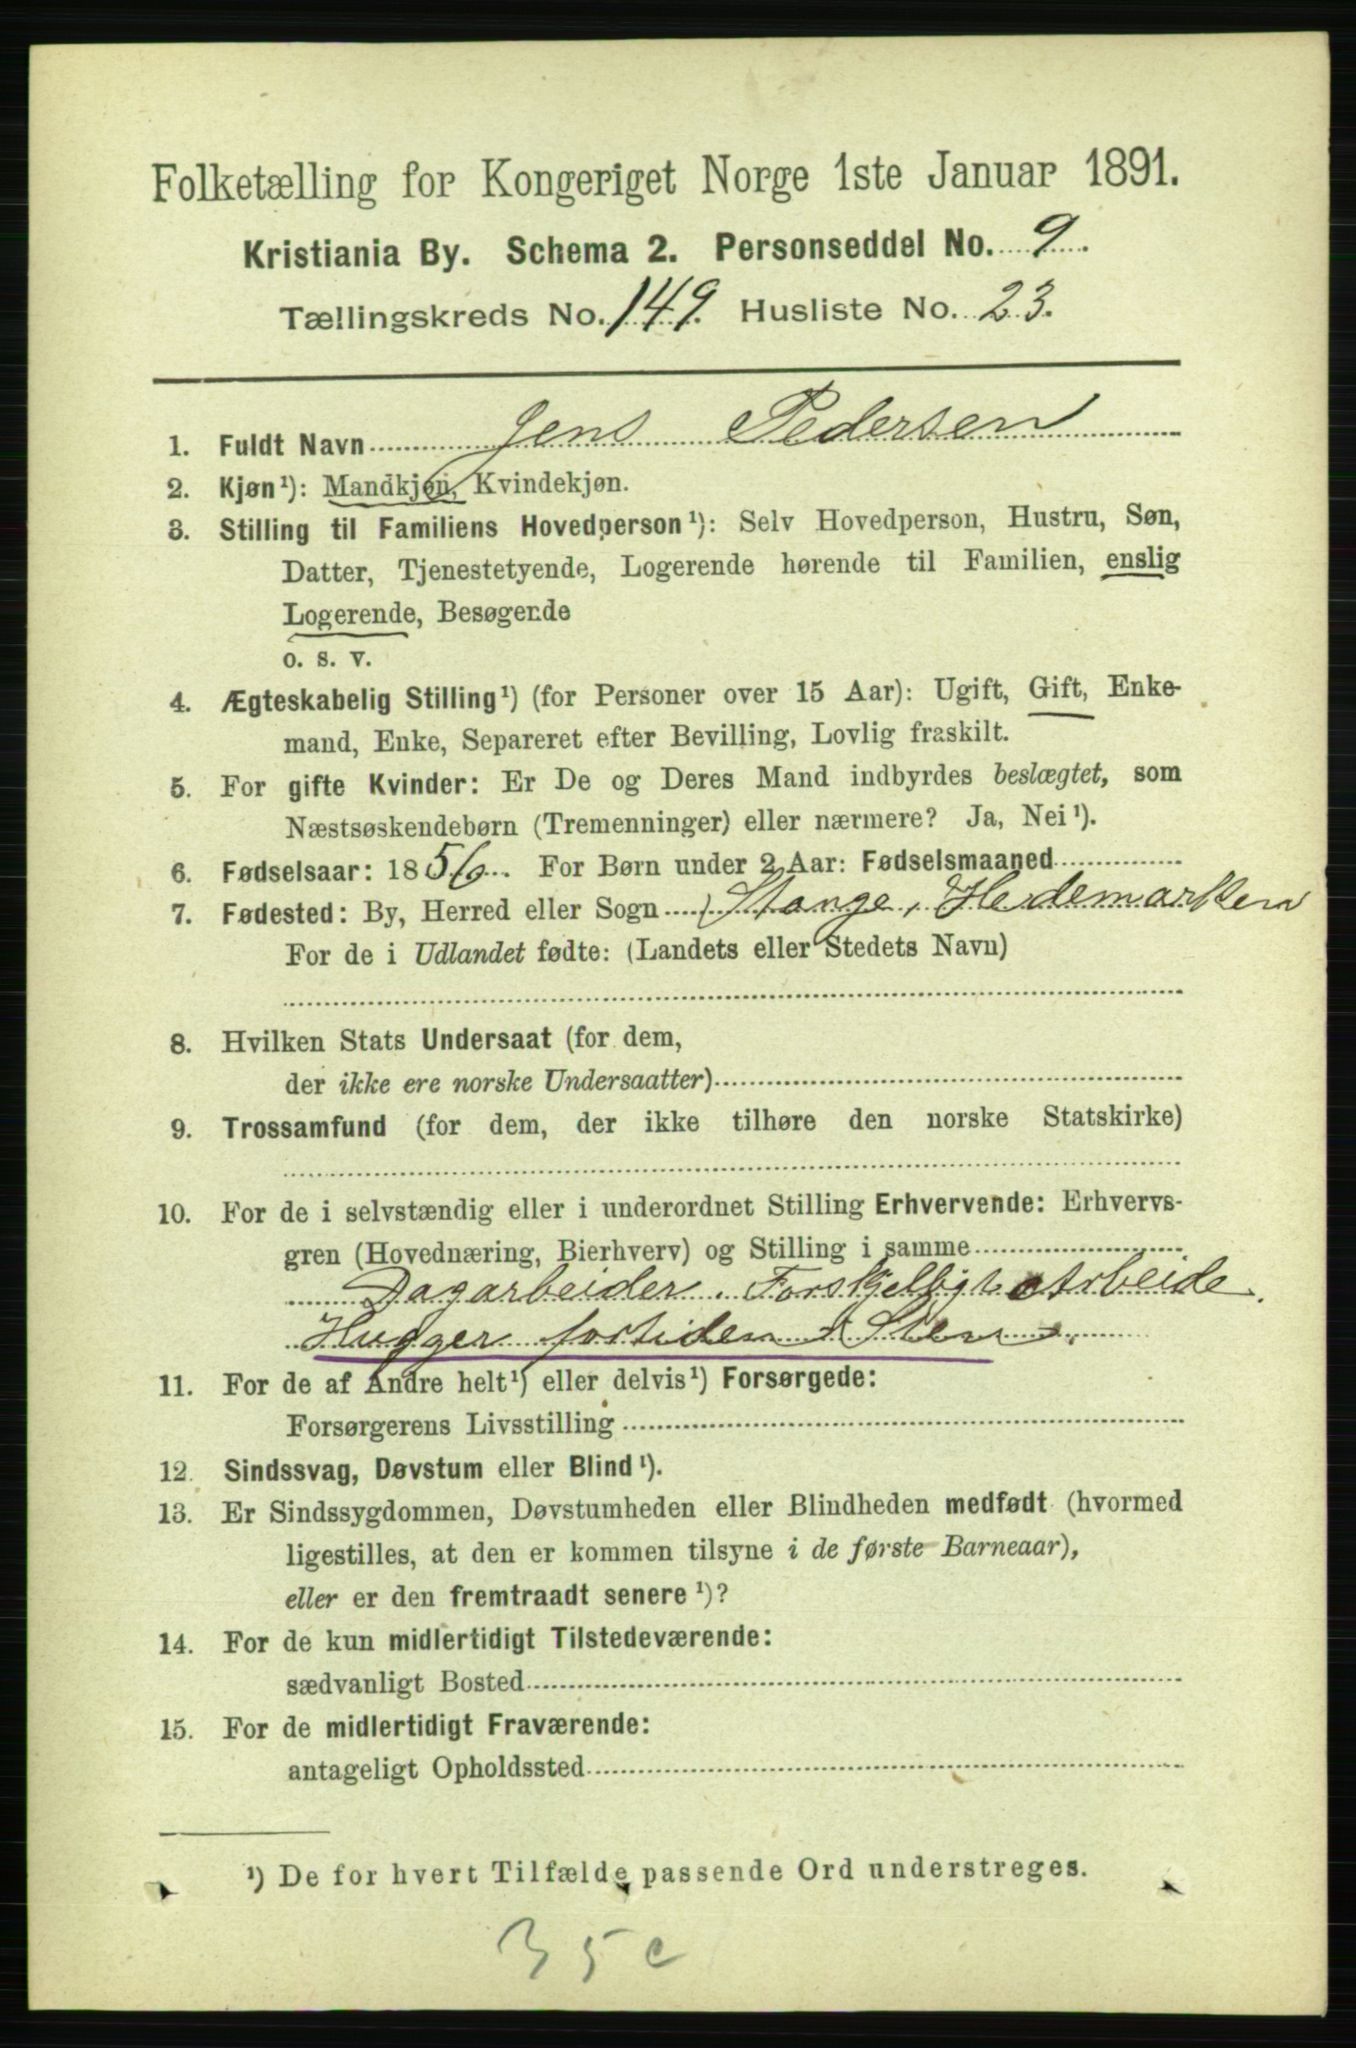 Folketælling for Kongeriget Norge 1ste Januar 1891.
Kristiania By. Schema 2. Personseddel No. 9.
Tællingskreds No. 149. Husliste No. 23.
1. Fuldt Navn Jens Pedersen
2. Kjøn¹): Mandkjøn, Kvindekjøn.
3. Stilling til Familiens Hovedperson¹): Selv Hovedperson, Hustru, Søn,
Datter, Tjenestetyende, Logerende hørende til Familien, enslig
Logerende, Besøgende
o. s. v.
4. Ægteskabelig Stilling¹) (for Personer over 15 Aar): Ugift, Gift, Enke-
mand, Enke, Separeret efter Bevilling, Lovlig fraskilt.
5. For gifte Kvinder: Er De og Deres Mand indbyrdes beslægtet, som
Næstsøskendebørn (Tremenninger) eller nærmere? Ja, Nei¹).
6. Fødselsaar: 1856. For Børn under 2 Aar: Fødselsmaaned
7. Fødested: By, Herred eller Sogn Stange, Hedemarken
For de i Udlandet fødte: (Landets eller Stedets Navn)
8. Hvilken Stats Undersaat (for dem,
der ikke ere norske Undersaatter)
9. Trossamfund (for dem, der ikke tilhøre den norske Statskirke)
10. For de i selvstændig eller i underordnet Stilling Erhvervende: Erhvervs-
gren (Hovednæring, Bierhverv) og Stilling i samme
Dagarbeider. Forskjelligt Arbeide.
Hugger fortiden Sten.
11. For de af Andre helt¹) eller delvis¹) Forsørgede:
Forsørgerens Livsstilling
12. Sindssvag, Døvstum eller Blind¹).
13. Er Sindssygdommen, Døvstumheden eller Blindheden medfødt (hvormed
ligestilles, at den er kommen tilsyne i de første Barneaar),
eller er den fremtraadt senere¹)?
14. For de kun midlertidigt Tilstedeværende:
sædvanligt Bosted
15. For de midlertidigt Fraværende:
antageligt Opholdssted
¹) De for hvert Tilfælde passende Ord understreges.
35c